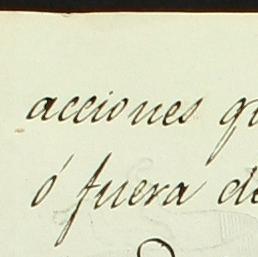 acciones
ó fuera de